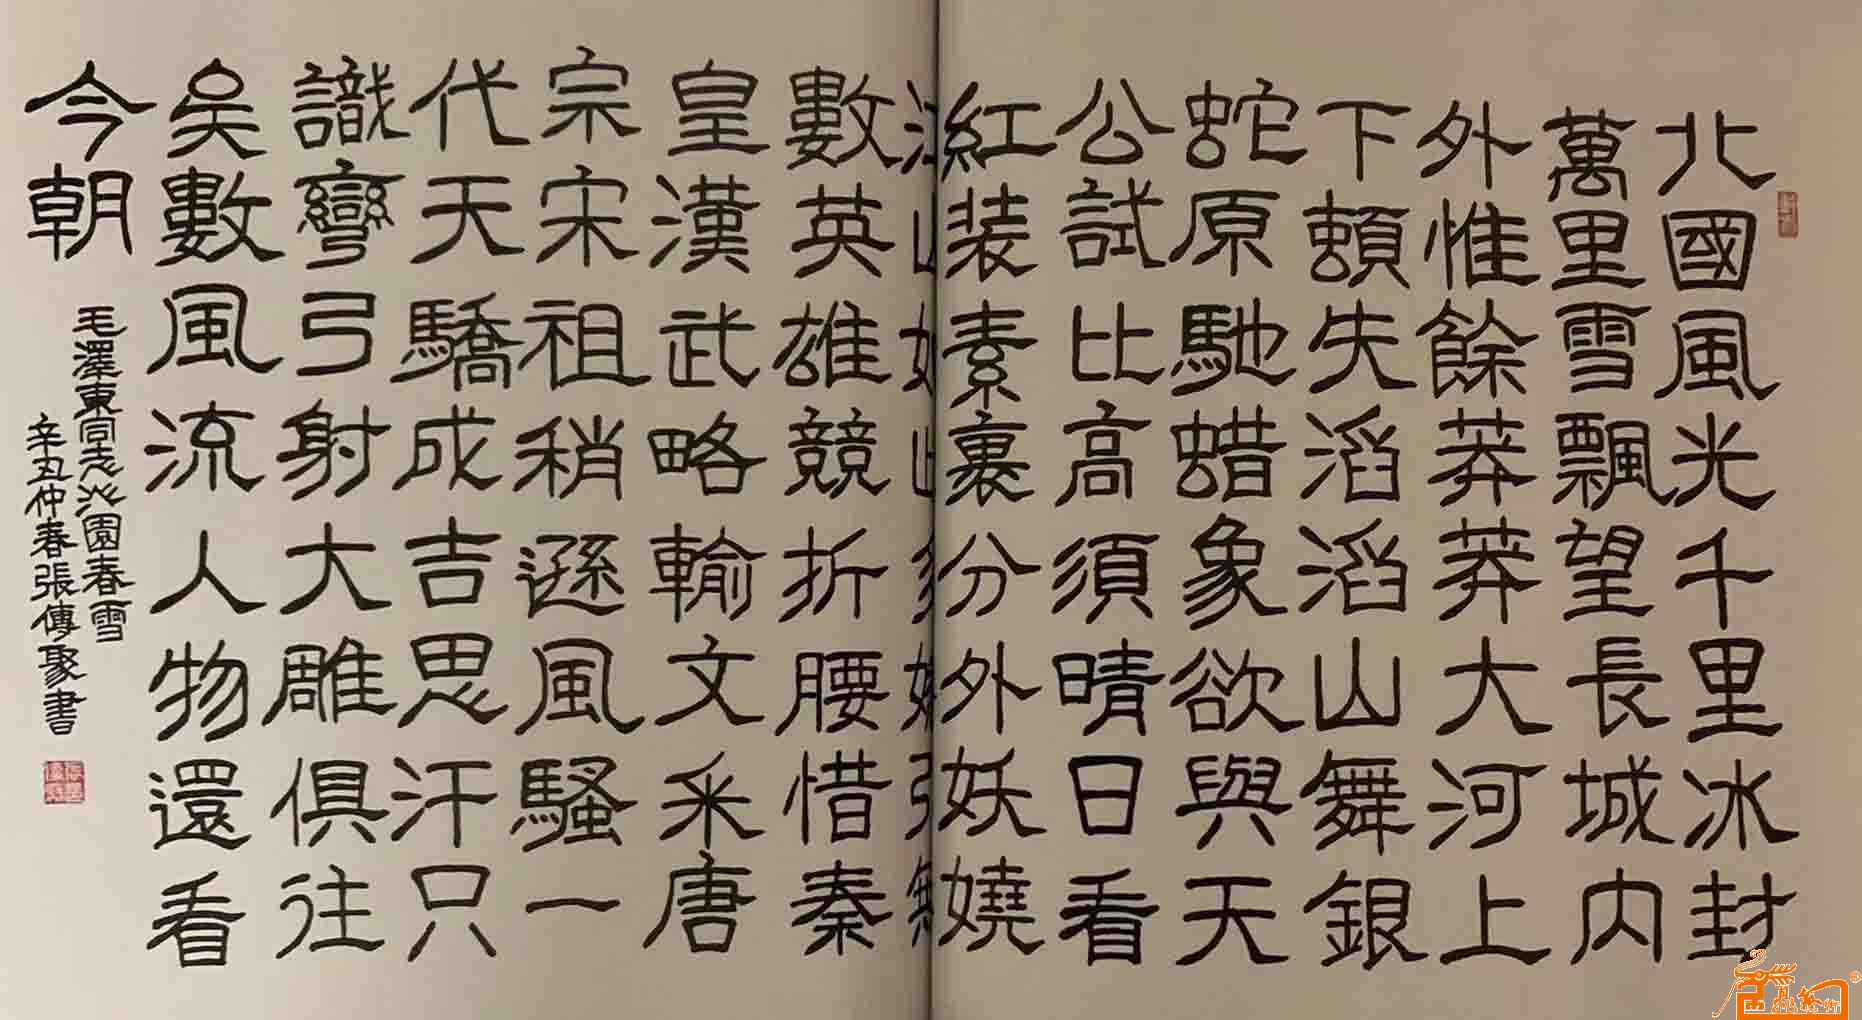 北國風光千里冰封
萬里雪飄望長城內
外惟餘莽莽大河上
下頓失滔滔山舞銀
蛇原馳蜡象欲與天
公試比高須晴日看
紅装素裏分外妖嬈
江山如此多嬌引無
數英雄競折腰惜秦
皇漢武略輸文采唐
宗宋祖稍遜風騷一
代天驕成吉思汗只
識彎弓射大雕俱往
矣數風流人物還看
今朝
毛澤東同志沁園春雪
辛丑仲春張傳聚書